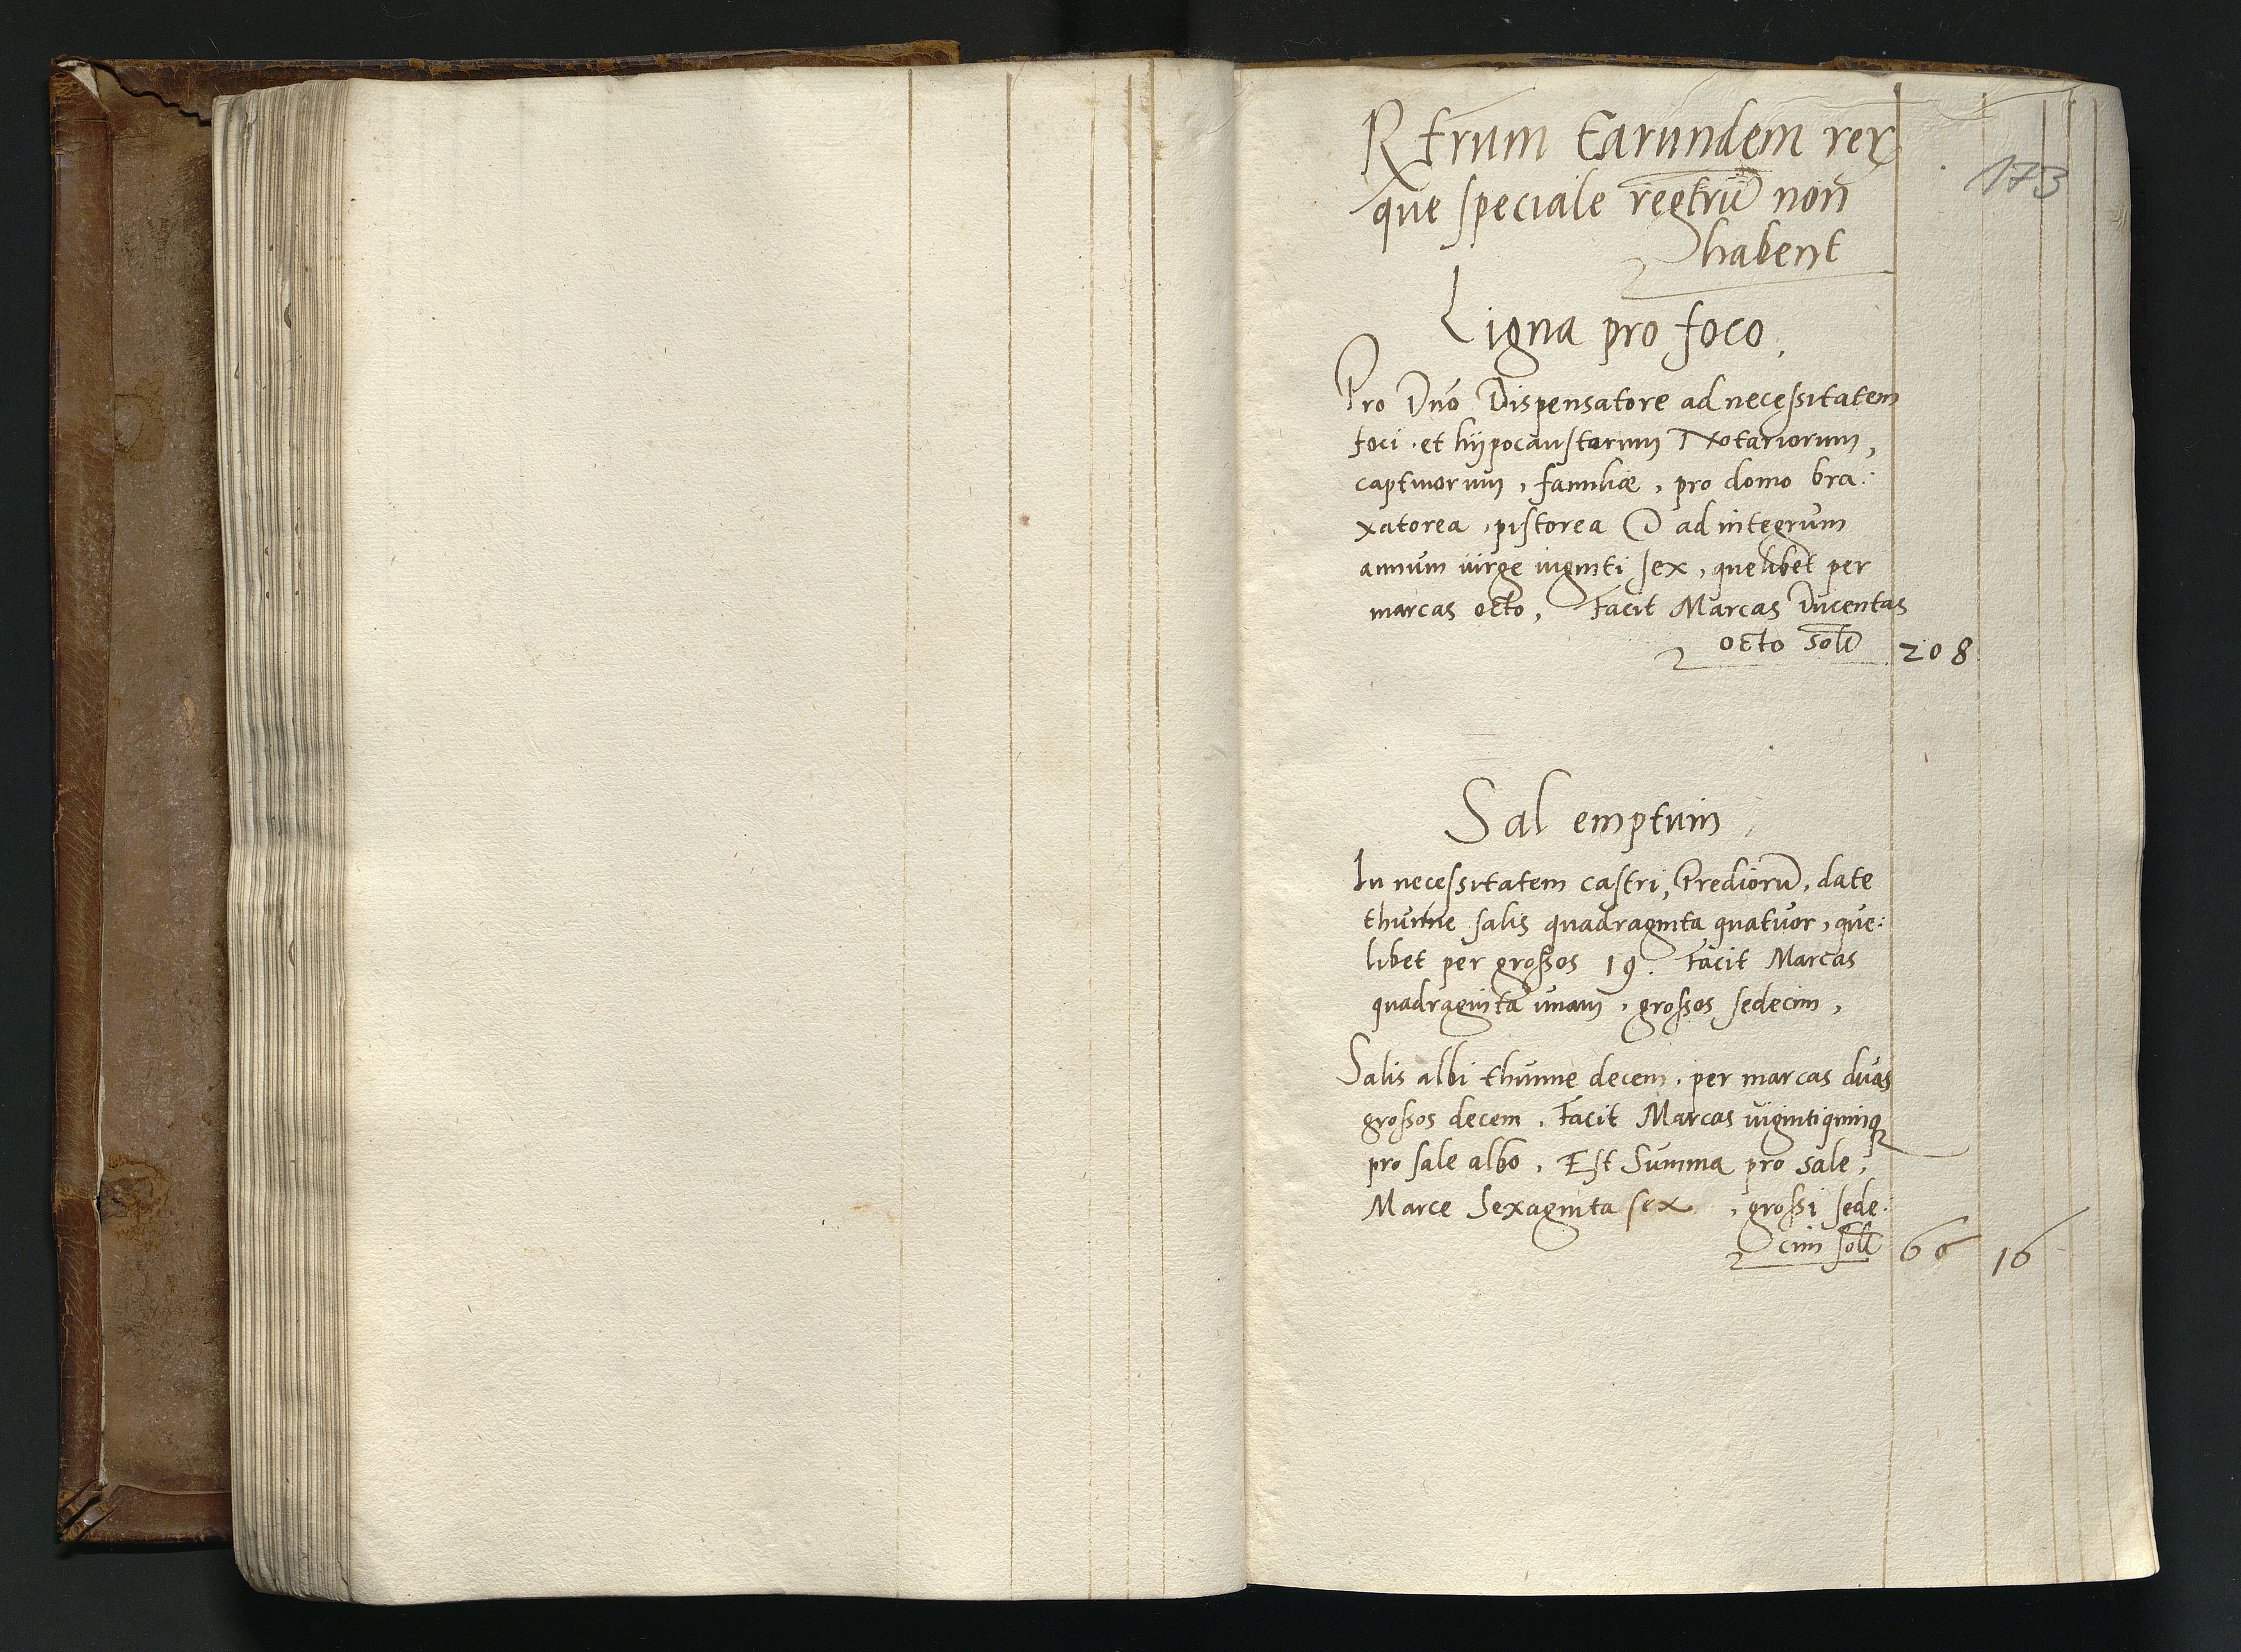 Rẽtrum Earundem reꝝ
173
que speciale regtrũ non
habent
Ligna pro foco.
Pro Dno Dispensatore ad necessitatem
foci et hypocaustarum Notariorum,
captiuorum, familiæ, pro domo bra:
xatorea, pistorea ad integrum
annum virge viginti sex, quelibet per
marcas octo, Facit Marcas Ducentas
octo sol
208
Sal emptum
In necessitatem castri, Prediorũ, date
thunne salis quadraginta quatuor, que:
libet per grossos 19. Facit Marcas
quadraginta vnam, grossos sedecim,
Salis albi thunne decem, per marcas duas
grossos decem, Facit Marcas vigintiquinqꝫ
pro sale albo, Est Summa pro sale,
Marce Sexaginta sex, grossi sede:
cim soll
66 16